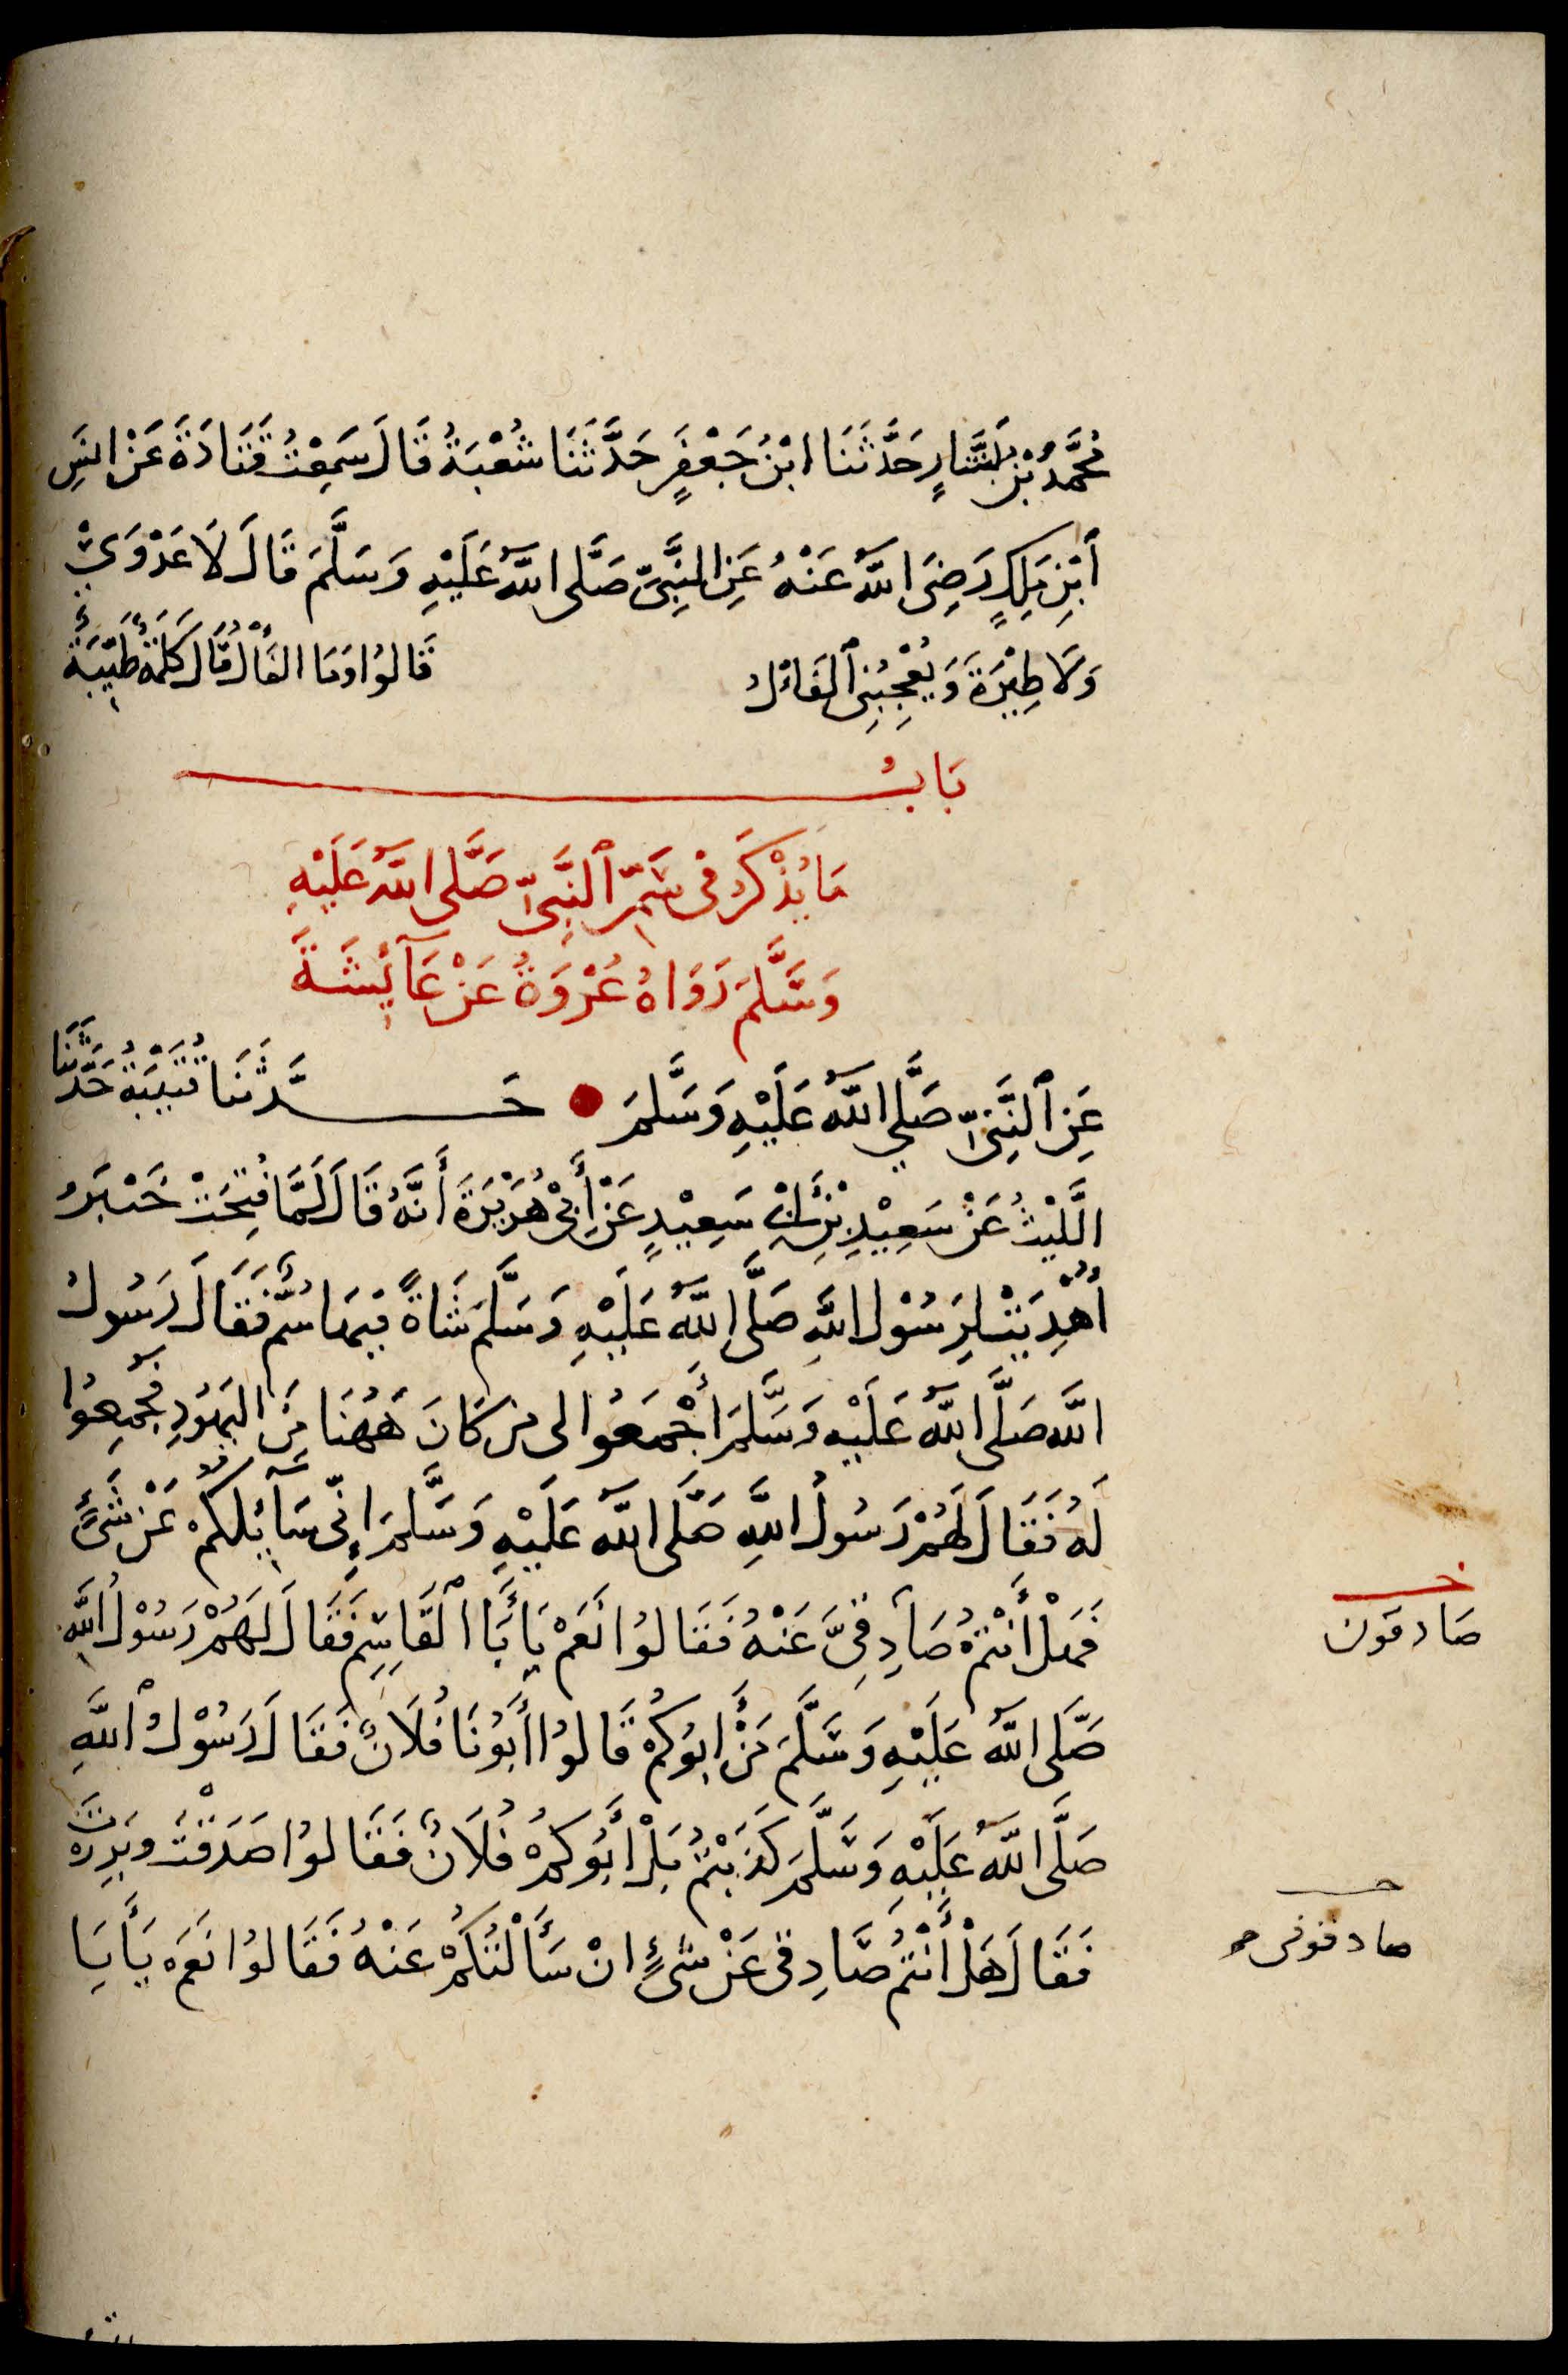 مُحَمَّدُ بْنُ بَشَّارٍ حَدَّثَنَا ابْنُ جَعْفَرٍ حَدَّثَنَا شُعْبَةُ قَالَ سَمِعْتُ قَتَادَةَ عَنْ انَسِ
ٱبْنِ مٰلِكٍ رَضِىَ اللّٰهُ عَنْهُ عَنِ النَّبِىِّ صَلَّى اللّٰهُ عَلَيْهِ وَسَلَّمَ قَالَ لَا عَدْوَىٰ
وَلَا طِيَرَةَ وَيُعْجِبُنِى ٱلْفَأْلُ قَالُوا وَمَا الْفَأْلُ قَالَ كَلِمَةٌ طَيِّبَةٌ
بَابُ
مَا يُذْكَرُ فِى سَمِّ ٱلنَّبِىِّ صَلَّى اللّٰهُ عَلَيْهِ
وَسَلَّمَ رَوَاهُ عُرْوَةُ عَنْ عَآئِشَةَ
عَنِ ٱلنَّبِىِّ صَلَّى اللّٰهُ عَلَيْهِ وَسَلَّمَ حَدَّثَنَا قُتَيْبَةُ حَدَّثَنَا
اللَّيْثُ عَنْ سَعِيْدِ بْنِ أَبِى سَعِيْدٍ عَنْ أَبِى هُرَيْرَةَ أَنَّهُ قَالَ لَمَّا فُتِحَتْ خَيْبَرُ
أُهْدِيَتْ لِرَسُوْلِ اللّٰهِ صَلَّى اللّٰهُ عَلَيْهِ وَسَلَّمَ شَاةٌ فِيْهَا سُمٌّ فَقَالَ رَسُولُ
اللّٰه صَلَّى اللّٰهُ عَلَيْهِ وَسَلَّمَ أَجْمَعُوا لى من كَانَ هٰهُنَا مِنَ الْيَهُودِ فَجُمِعُوا
لَهُ فَقَالَ لَهُمْ رَسُولُ اللّٰهِ صَلَّى اللّٰهُ عَلَيْهِ وَسَلَّمَ إِنِّى سَآئِلُكُمْ عَنْ شَىْءٍ
فَهَلْ أَنْتُمْ صَادِقِىَّ عَنْهُ فَقَالُوا نَعَمْ يَا أَبَا ٱلْقَاسِمِ فَقَالَ لَهُمْ رَسُوْلُ اللّٰهِ
صَلَّى اللّٰهُ عَلَيْهِ وَسَلَّمَ مَنْ ابُوكُمْ قَالُوا أَبُوْنَا فُلَانٌ فَقَالَ رَسُوْلُ ٱللّٰهِ
صَلَّى اللّٰهُ عَلَيْهِ وَسَلَّمَ كَذَبْتُمْ بَلْ أَبُوكُمْ فُلَانٌ فَقَالُوا صَدَقْتَ وَبَرِرْتَ
فَقَالَ هَلْ أَنْتُمْ صَّادِقِى عَنْ شىْءٍ انْ سَأَلْتُكُمْ عَنْهُ فَقَالُوا نَعَمْ يَا أَبَا
صَادقون
صادقونى